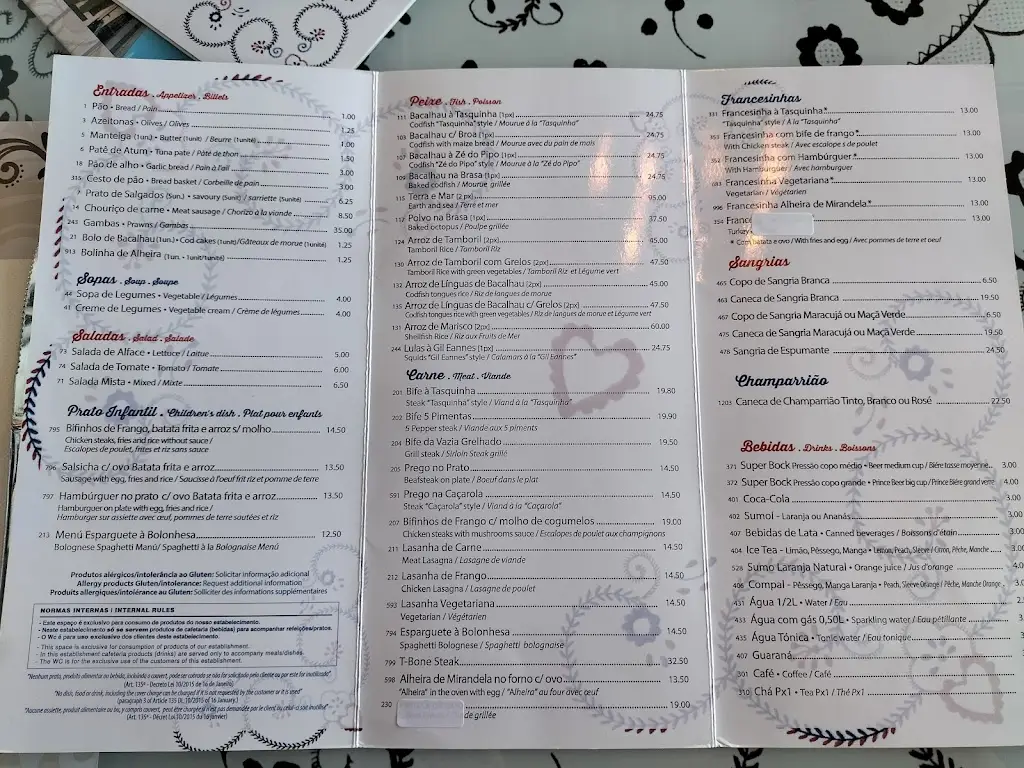 Entradas . Appetizer . Billets
1 Pão • Bread / Pain 1.00
3 Azeitonas • Olives / Olives 1.25
5 Manteiga (1un.) • Butter (1unit) / Beurre (1unité) 1.00
6 Patê de Atum • Tuna pate / Pâte de thon 1.50
18 Pão de alho • Garlic bread / Pain à l'ail 3.00
315 Cesto de pão • Bread basket / Corbeille de pain 3.00
7 Prato de Salgados (5un.) • savoury (5unit) / sarriette (5unité) 6.25
14 Chouriço de carne • Meat sausage / Chorizo à la viande 8.50
243 Gambas • Prawns / Gambas 35.00
21 Bolo de Bacalhau (1un.) • Cod cakes (1unit)/Gâteaux de morue (1unité) 1.25
913 Bolinha de Alheira (1un. • 1unit/1unité) 1.25
Sopas . Soup . Soupe
44 Sopa de Legumes • Vegetable / Légumes 4.00
41 Creme de Legumes • Vegetable cream / Crème de légumes 4.00
Saladas . Salad . Salade
73 Salada de Alface • Lettuce / Laitue 5.00
74 Salada de Tomate • Tomato / Tomate 6.00
71 Salada Mista • Mixed / Mixte 6.50
Prato Infantil . Children's dish . Plat pour enfants
795 Bifinhos de Frango, batata frita e arroz s/ molho 14.50
Chicken steaks, fries and rice without sauce /
Escalopes de poulet, frites et riz sans sauce
796 Salsicha c/ ovo Batata frita e arroz 13.50
Sausage with egg, fries and rice / Saucisse à l'oeuf frit riz et pomme de terre
797 Hambúrguer no prato c/ ovo Batata frita e arroz 13.50
Hamburger on plate with egg, fries and rice /
Hamburger sur assiette avec œuf, pommes de terre sautées et riz
213 Menú Esparguete à Bolonhesa 12.50
Bolognese Spaghetti Manú/ Spaghetti à la Bolognaise Menú
Produtos alérgicos/intolerância ao Gluten: Solicitar informação adicional
Allergy products Gluten/intolerance: Request additional information
Produits allergiques/intolérance au Gluten: Solliciter des informations supplémentaires
NORMAS INTERNAS | INTERNAL RULES
- Este espaço é exclusivo para consumo de produtos do nosso estabelecimento.
- Neste estabelecimento só se servem produtos de cafetaria (bebidas) para acompanhar refeições/pratos.
- O Wc é para uso exclusivo dos clientes deste estabelecimento.
- This space is exclusive for consumption of products of our establishment.
- In this establishment cafeteria products (drinks) are served only to accompany meals/dishes.
- The WC is for the exclusive use of the customers of this establishment.
"Nenhum prato, produto alimentar ou bebida, incluindo o couvert, pode ser cobrado se não for solicitado pelo cliente ou por este for inutilizado"
(Art. 135º - Decreto Lei 10/2015 de 16 de Janeiro)
"No dish, food or drink, including the cover charge can be charged if it is not requested by the customer or it is used"
(paragraph 3 of Article 135 DL 10/2015 of 16 January.)
"Aucune assiette, produit alimentaire ou bu, y compris couvert, peut être chargé si n'est pas demandée par le client ou celui-ci soit inutilisé"
(Art. 135º - Décret Lei 10/2015 du 16 janvier)
Peixe . Fish . Poisson
111 Bacalhau à Tasquinha [1px] 24.75
Codfish "Tasquinha" style / Mourue à la "Tasquinha"
103 Bacalhau c/ Broa [1px] 24.75
Codfish with maize bread / Mourue avec du pain de maïs
107 Bacalhau à Zé do Pipo [1px] 24.75
Codfish "Zé do Pipo" style / Mourue à la "Zé do Pipo"
109 Bacalhau na Brasa [1px] 24.75
Baked codfish / Mourue grillée
115 Terra e Mar [2 px] 95.00
Earth and sea / Terre et mer
112 Polvo na Brasa [1px] 37.50
Baked octopus / Poulpe grillée
124 Arroz de Tamboril [2px] 45.00
Tamboril Rice / Tamboril Riz
130 Arroz de Tamboril com Grelos [2px] 47.50
Tamboril Rice with green vegetables / Tamboril Riz et Légume vert
132 Arroz de Línguas de Bacalhau [2px] 45.00
Codfish tongues rice / Riz de langues de morue
135 Arroz de Línguas de Bacalhau c/ Grelos [2px] 47.50
Codfish tongues rice with green vegetables / Riz de langues de morue et Légume vert
131 Arroz de Marisco [2px] 60.00
Shellfish Rice / Riz aux Fruits de Mer
244 Lulas à Gil Eannes [1px] 24.75
Squids "Gil Eannes" style / Calamars à la "Gil Eannes"
Carne . Meat . Viande
201 Bife à Tasquinha 19.80
Steak "Tasquinha" style / Viand à la "Tasquinha"
202 Bife 5 Pimentas 19.90
5 Pepper steak / Viande aux 5 piments
204 Bife da Vazia Grelhado 19.50
Grill steak / Sirloin Steak grillé
205 Prego no Prato 14.50
Beafsteak on plate / Boeuf dans le plat
591 Prego na Caçarola 14.50
Steak "Caçarola" style / Viand à la "Caçarola"
207 Bifinhos de Frango c/ molho de cogumelos 19.00
Chicken steaks with mushrooms sauce / Escalopes de poulet aux champignons
211 Lasanha de Carne 14.50
Meat Lasagna / Lasagne de viande
212 Lasanha de Frango 14.50
Chicken Lasagna / Lasagne de poulet
593 Lasanha Vegetariana 14.50
Vegetarian / Végétarien
794 Esparguete à Bolonhesa 14.50
Spaghetti Bolognese / Spaghetti bolognaise
799 T-Bone Steak 32.50
598 Alheira de Mirandela no forno c/ ovo 13.50
"Alheira" in the oven with egg / "Alheira" au four avec œuf
230 19.00
de grillée
Francesinhas
351 Francesinha à Tasquinha* 13.00
"Tasquinha" style / A la "Tasquinha"
353 Francesinha com bife de frango* 13.00
With Chicken steak / Avec escalopes de poulet
352 Francesinha com Hambúrguer* 13.00
With Hamburguer / Avec hamburguer
683 Francesinha Vegetariana* 13.00
Vegetarian / Végétarien
996 Francesinha Alheira de Mirandela* 13.00
354 Franc 13.00
Turkey
* Com batata e ovo / With fries and egg / Avec pommes de terre et oeuf
Sangrias
465 Copo de Sangria Branca 6.50
463 Caneca de Sangria Branca 19.50
467 Copo de Sangria Maracujá ou Maçã Verde 6.50
475 Caneca de Sangria Maracujá ou Maçã Verde 19.50
478 Sangria de Espumante 24.50
Champarrião
1203 Caneca de Champarrião Tinto, Branco ou Rosé 22.50
Bebidas . Drinks . Boissons
371 Super Bock Pressão copo médio • Beer medium cup / Bière tasse moyenne 3.00
372 Super Bock Pressão copo grande • Prince Beer big cup / Prince Bière grand verre 4.00
401 Coca-Cola 3.00
402 Sumol - Laranja ou Ananás 3.00
407 Bebidas de Lata • Canned beverages / Boissons d'étain 3.00
404 Ice Tea - Limão, Pêssego, Manga • Lemon, Peach, Sleeve / Citron, Pêche, Manche 3.00
528 Sumo Laranja Natural • Orange juice / Jus d'orange 4.
406 Compal - Pêssego, Manga Laranja • Peach, Sleeve Orange / Pêche, Manche Orange 3.0
431 Água 1/2L • Water / Eau 2.
433 Água com gás 0,50L • Sparkling water / Eau pétillante 3.
435 Água Tónica • Tonic water / Eau tonique 3.
407 Guaraná 3.
301 Café • Coffee / Café
310 Chá Px1 • Tea Px1 / Thé Px1